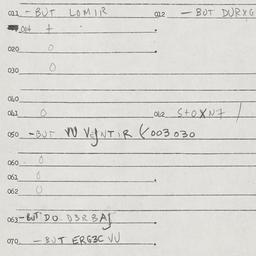 011 - BUT LOMIR 012 - BUT DURXG
014 +
020 0
030 0
040
041 0 042 S+OXN7 /
050 - BUT VU VEJNTIR (003030
060 0
061 0
062 0
063 - BUT DO D3RBAJ
070 - BUT ERG3C VU